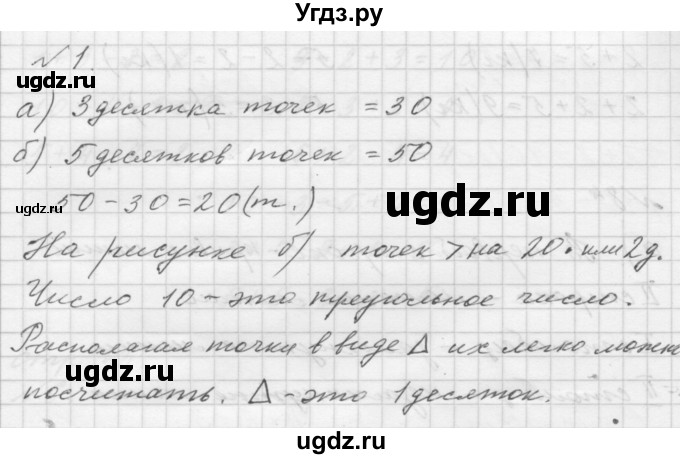 Угдз.ру
№ 1.
ugdz.ru
а) 3 десятка точек = 30
б) 5 десятков точек = 50
ugdz.ru
ugdz.ru 50 - 30 = 20 (т.)
ugdz.ru
На рисунке б) точек > на 20. или 2д.
Число 10 - это треугольное число.
Располагая точки в виде Δ их легко можно
ugdz.ru
посчитать. Δ - это 1 десяток.
ugdz.ru